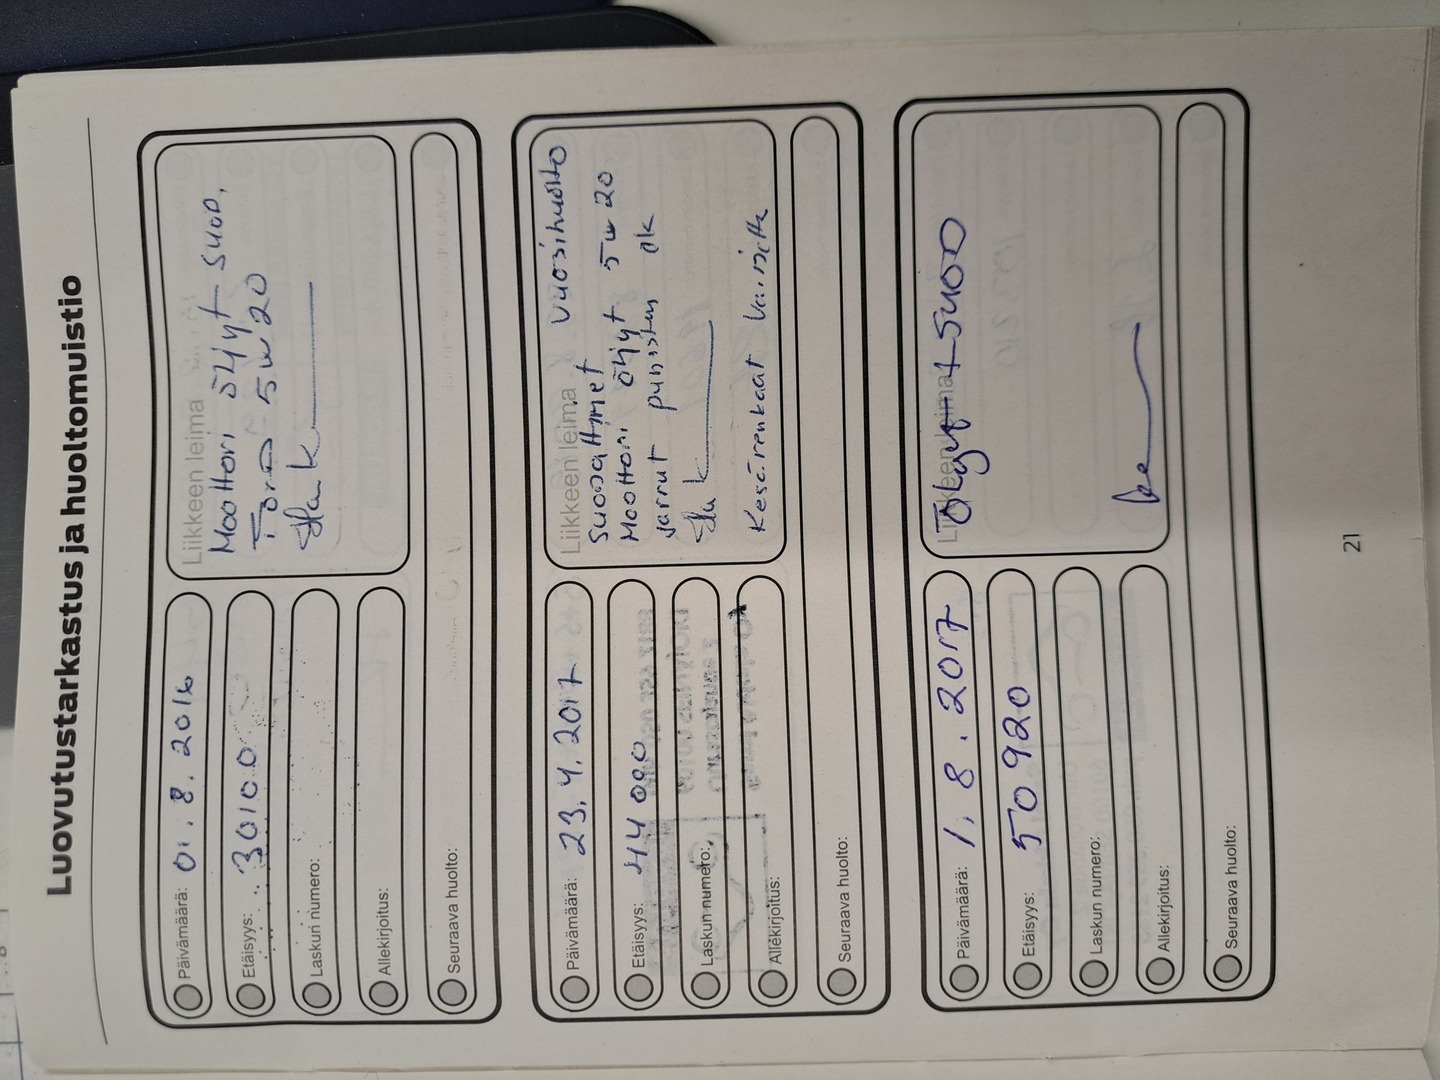 Luovutustarkastus ja huoltomuistio
Päivämäärä: 01.8.2016
Etäisyys: 30100
Laskun numero:
Allekirjoitus:
Seuraava huolto:
Liikkeen leima
Moottori öljyt + suod.
5w20
Päivämäärä: 23.4.2017
Etäisyys: 44000
Laskun numero:
Allekirjoitus:
Seuraava huolto:
Liikkeen leima
vuosihuolto
Suodattimet
Moottori öljyt 5w20
Jarrut ok
Kesärenkaat
Päivämäärä: 1.8.2017
Etäisyys: 50920
Laskun numero:
Allekirjoitus:
Seuraava huolto:
Liikkeen leima
Öljyt + suod
21